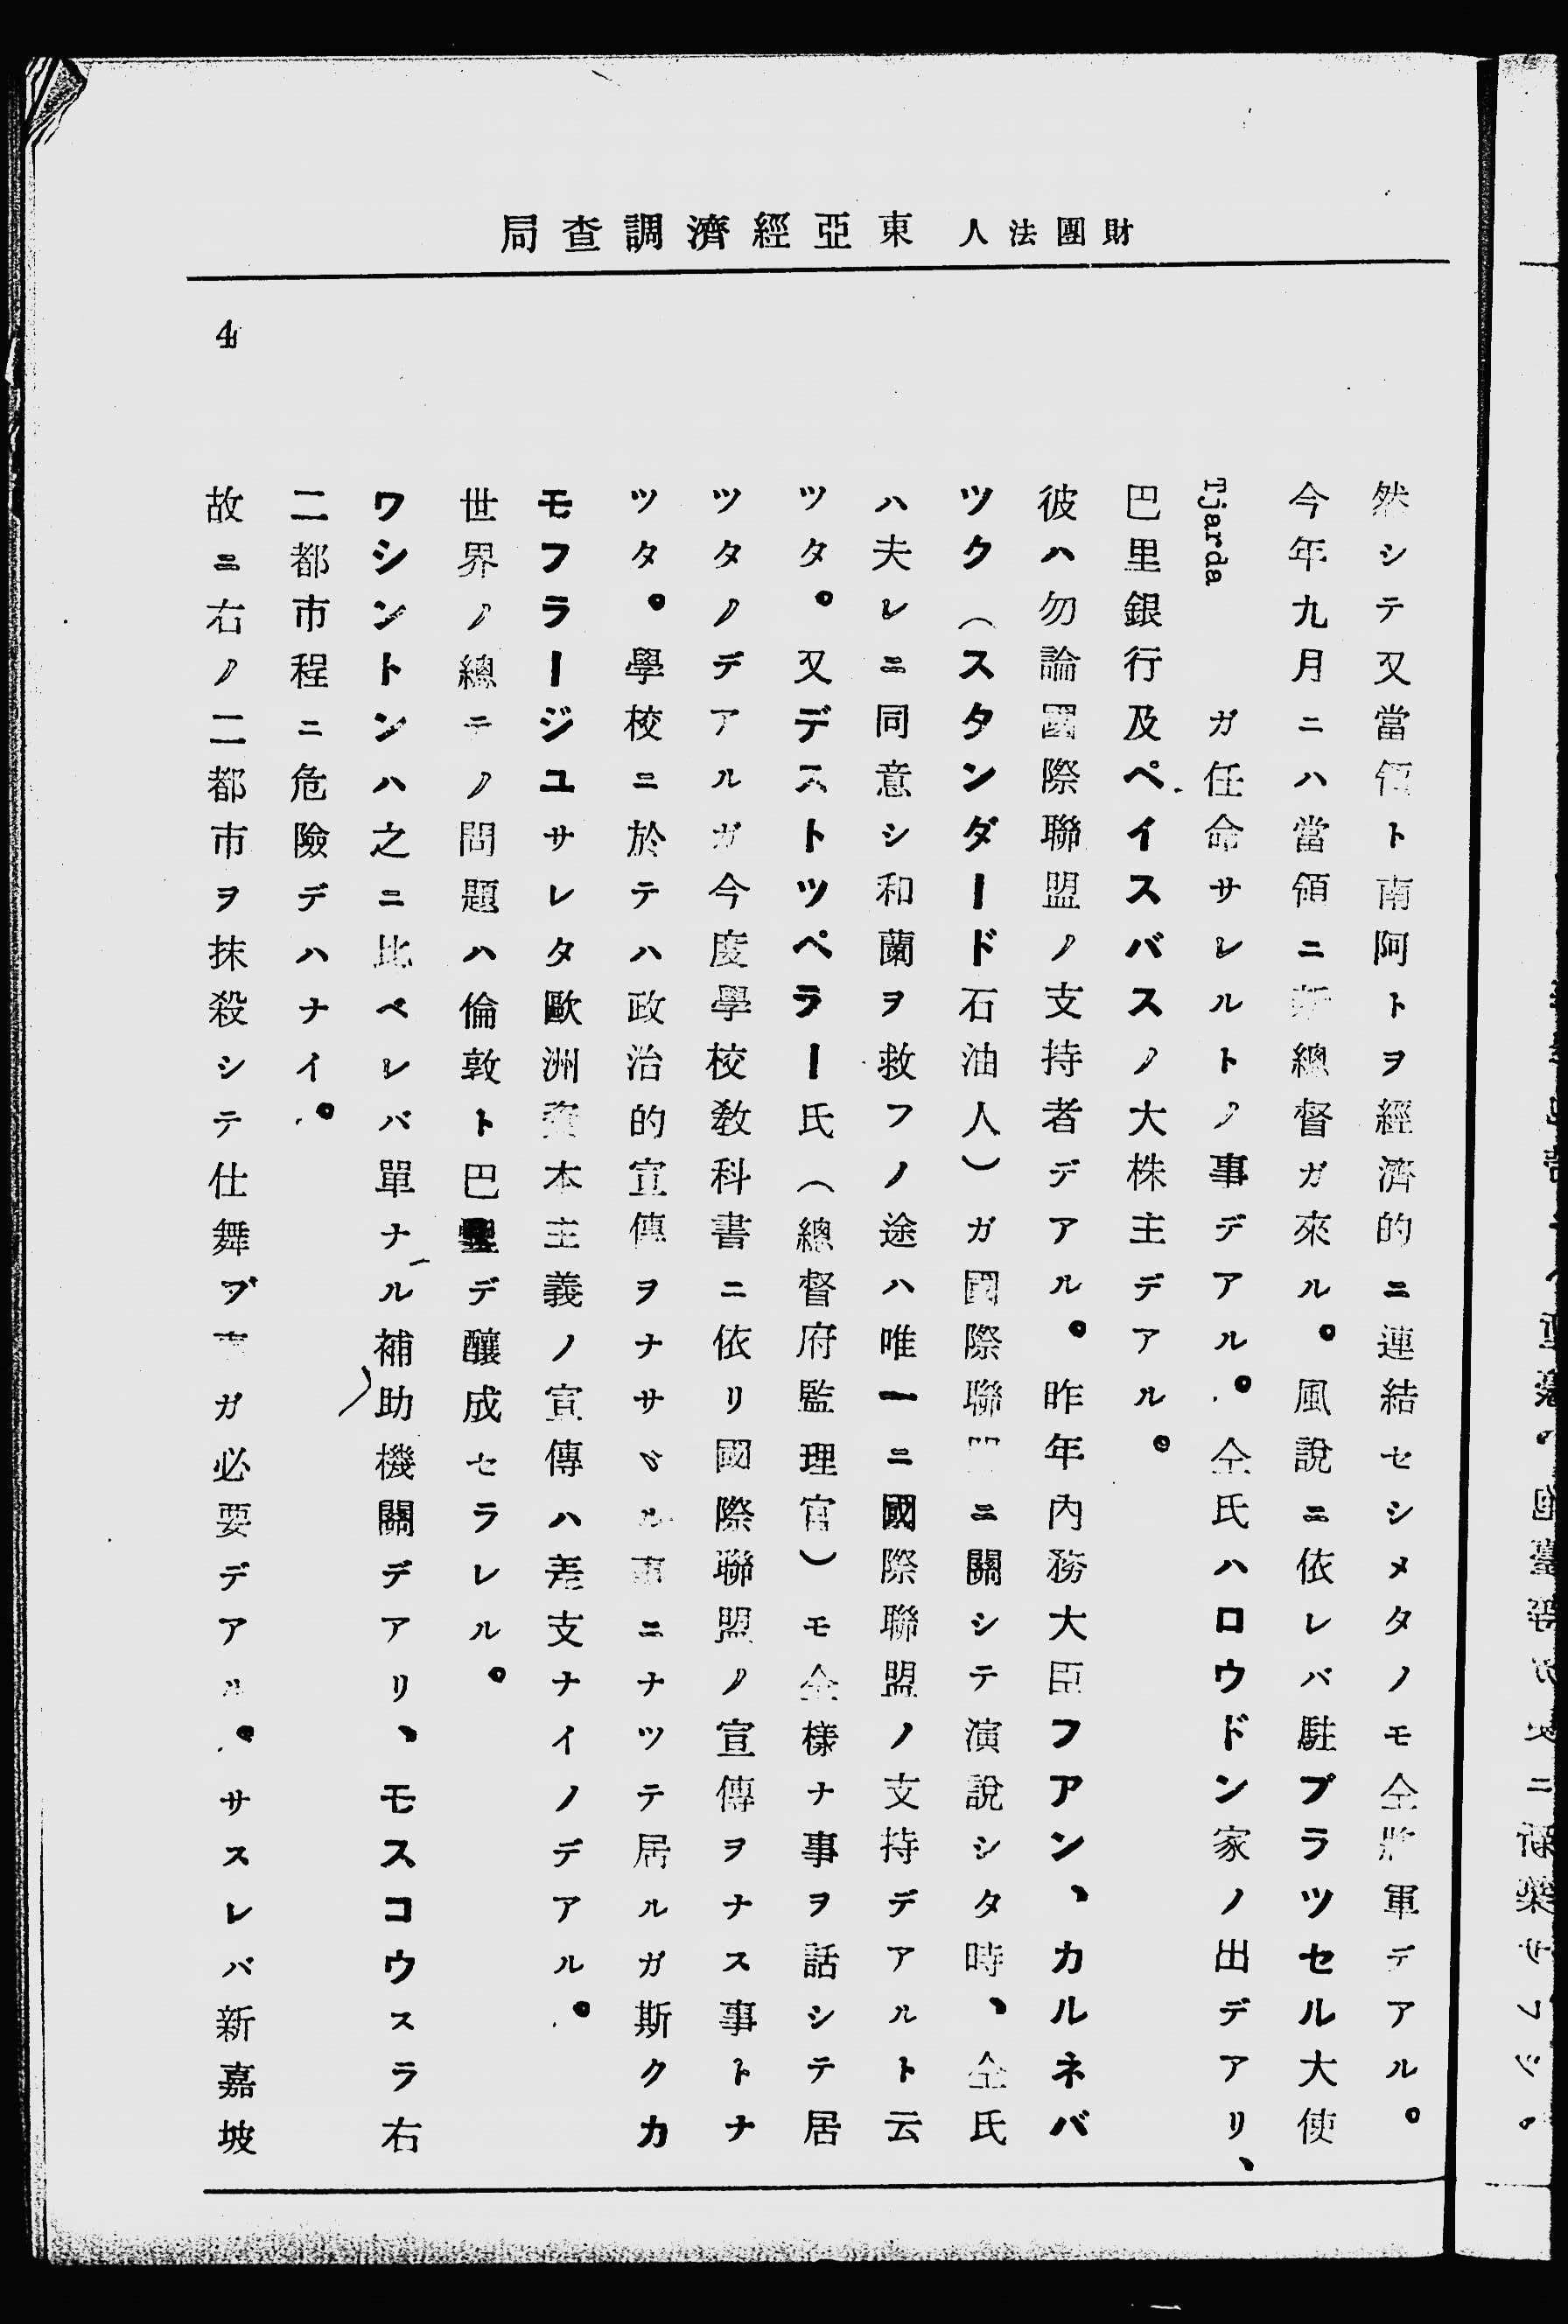 財團法人 東亞經濟調査局
4
然シテ又當領ト南阿トヲ經濟的ニ連結セシメタノモ仝將軍デアル。
今年九月ニハ當領ニ新總督ガ來ル。風說ニ依レバ駐ブラツセル大使
Tjarda ガ任命サレルトノ事デアル。仝氏ハロウドン家ノ出デアリ、
巴里銀行及ペイスバスノ大株主デアル。
彼ハ勿論國際聯盟ノ支持者デアル。昨年內務大臣フアン、カルネバ
ツク（スタンダード石油人）ガ國際聯盟ニ關シテ演說シタ時、仝氏
ハ夫レニ同意シ和蘭ヲ救フノ途ハ唯一ニ國際聯盟ノ支持デアルト云
ツタ。又デストツペラー氏（總督府監理官）モ仝樣ナ事ヲ話シテ居
ツタノデアルガ今度學校敎科書ニ依リ國際聯盟ノ宣傳ヲナス事トナ
ツタ。學校ニ於テハ政治的宣傳ヲナサヾル事ニナツテ居ルガ斯クカ
モフラージユサレタ歐洲資本主義ノ宣傳ハ差支ナイノデアル。
世界ノ總テノ問題ハ倫敦ト巴里デ釀成セラレル。
ワシントンハ之ニ比ベレバ單ナル補助機關デアリ、モスコウスラ右
二都市程ニ危險デハナイ。
故ニ右ノ二都市ヲ抹殺シテ仕舞フ事ガ必要デアル。サスレバ新嘉坡